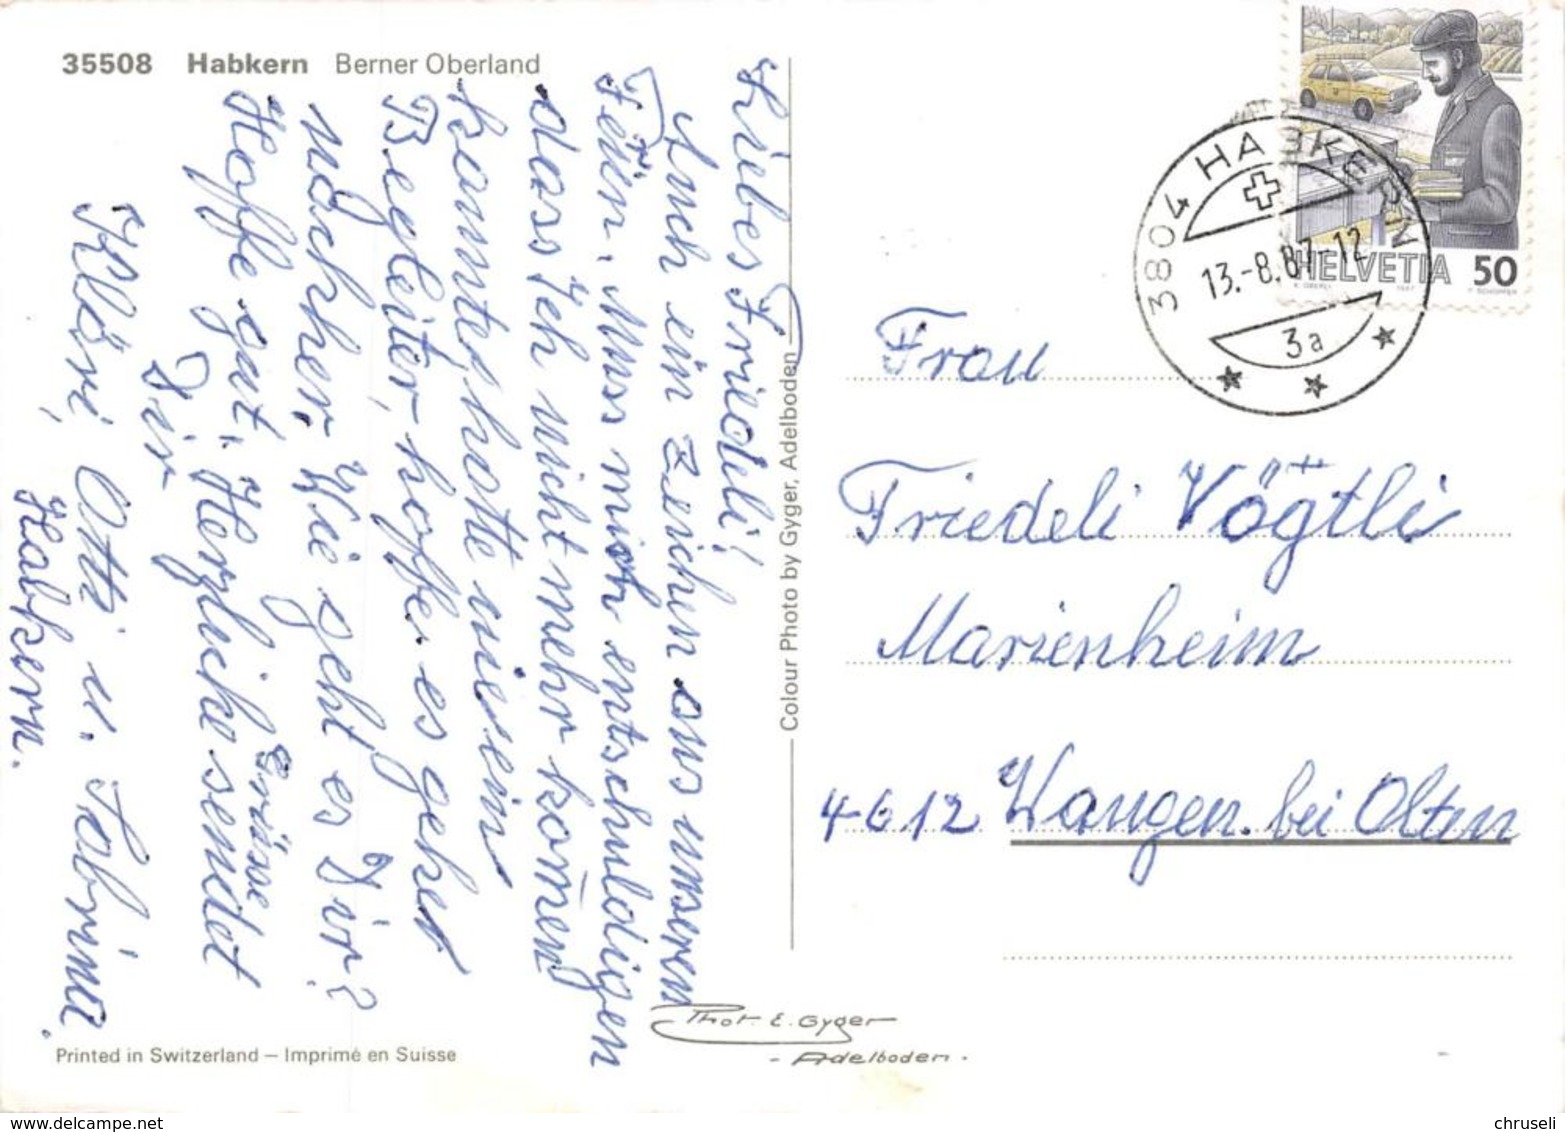 35508 Habkern Berner Oberland
Liebes Friedeli!
Auch ein Zeichen aus unseren
Ferien. Muss mich entschuldigen
dass Ich nicht mehr komen̄
kannte, hatte wie ein
Begleiter, hoffe es gehet
nachher. Wie geht es Dir?
Hoffe gut. Herzliche
Grüsse
sendet
Dir
Klösi, Otti u. Sabrina.
Habkern.
Colour Photo by Gyger, Adelboden
HELVETIA 50
3804 HABKERN
13.-8.87-12
3a
Frau
Friedeli Vögtli
Marienheim
4612 Wangen bei Olten
Phot. E. Gyger
- Adelboden -
Printed in Switzerland – Imprimé en Suisse
www.delcampe.net
chruseli